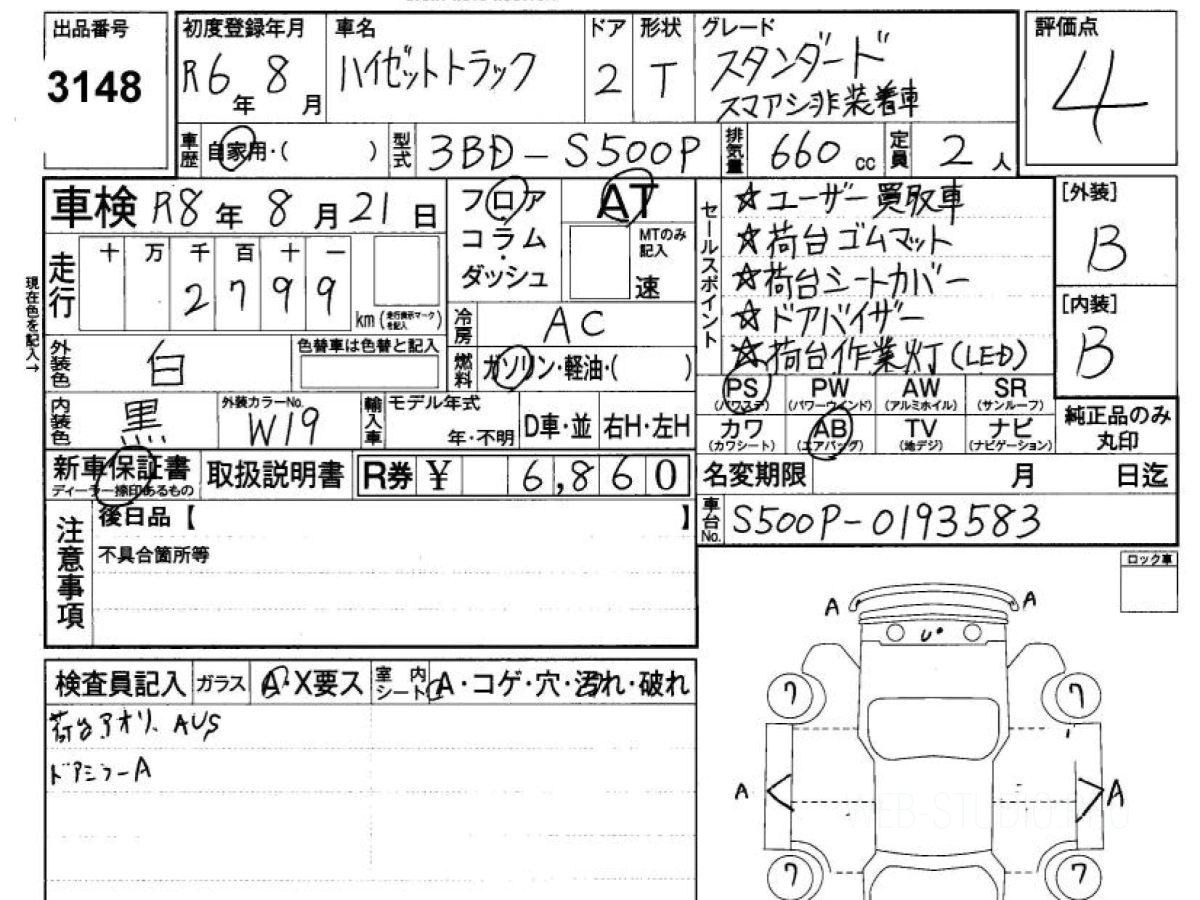 出品番号
3148
初度登録年月
R6年 8月
車名
ハイゼットトラック
ドア
2
形状
T
グレード
スタンダード
スマアシ非装着車
評価点
4
車歴
自家用・( )
型式
3BD-S500P
排気量
660 cc
定員
2人
車検 R8年 8月 21日
フロア
コラム
・
ダッシュ
AT
MTのみ
記入
速
セールスポイント
☆ユーザー買取車
☆荷台ゴムマット
☆荷台シートカバー
☆ドアバイザー
☆荷台作業灯(LED)
[外装]
B
[内装]
B
現在色を記入→
走行
十 万 千 百 十 一
2 7 9 9
km (走行表示マークを記入)
冷房
AC
外装色
白
色替車は色替と記入
燃料
ガソリン・軽油・( )
内装色
黒
外装カラーNo.
W19
輸入車
モデル年式
年・不明
D車・並
右H・左H
PS
(パワステ)
PW
(パワーウインド)
AW
(アルミホイル)
SR
(サンルーフ)
カワ
(カワシート)
AB
(エアバッグ)
TV
(地デジ)
ナビ
(ナビゲーション)
純正品のみ
丸印
新車保証書
ディーラー捺印あるもの
取扱説明書
R券 ¥ 6,860
名変期限 月 日迄
車台No.
S500P-0193583
注意事項
後日品【 】
不具合箇所等
ロック車
検査員記入
ガラス
A・X要ス
室内
シート
A・コゲ・穴・汚れ・破れ
荷台アオリ、AUS
ドアミラーA
A
A
U
7
7
A
A
7
7
WEB-STUDIO.PRO